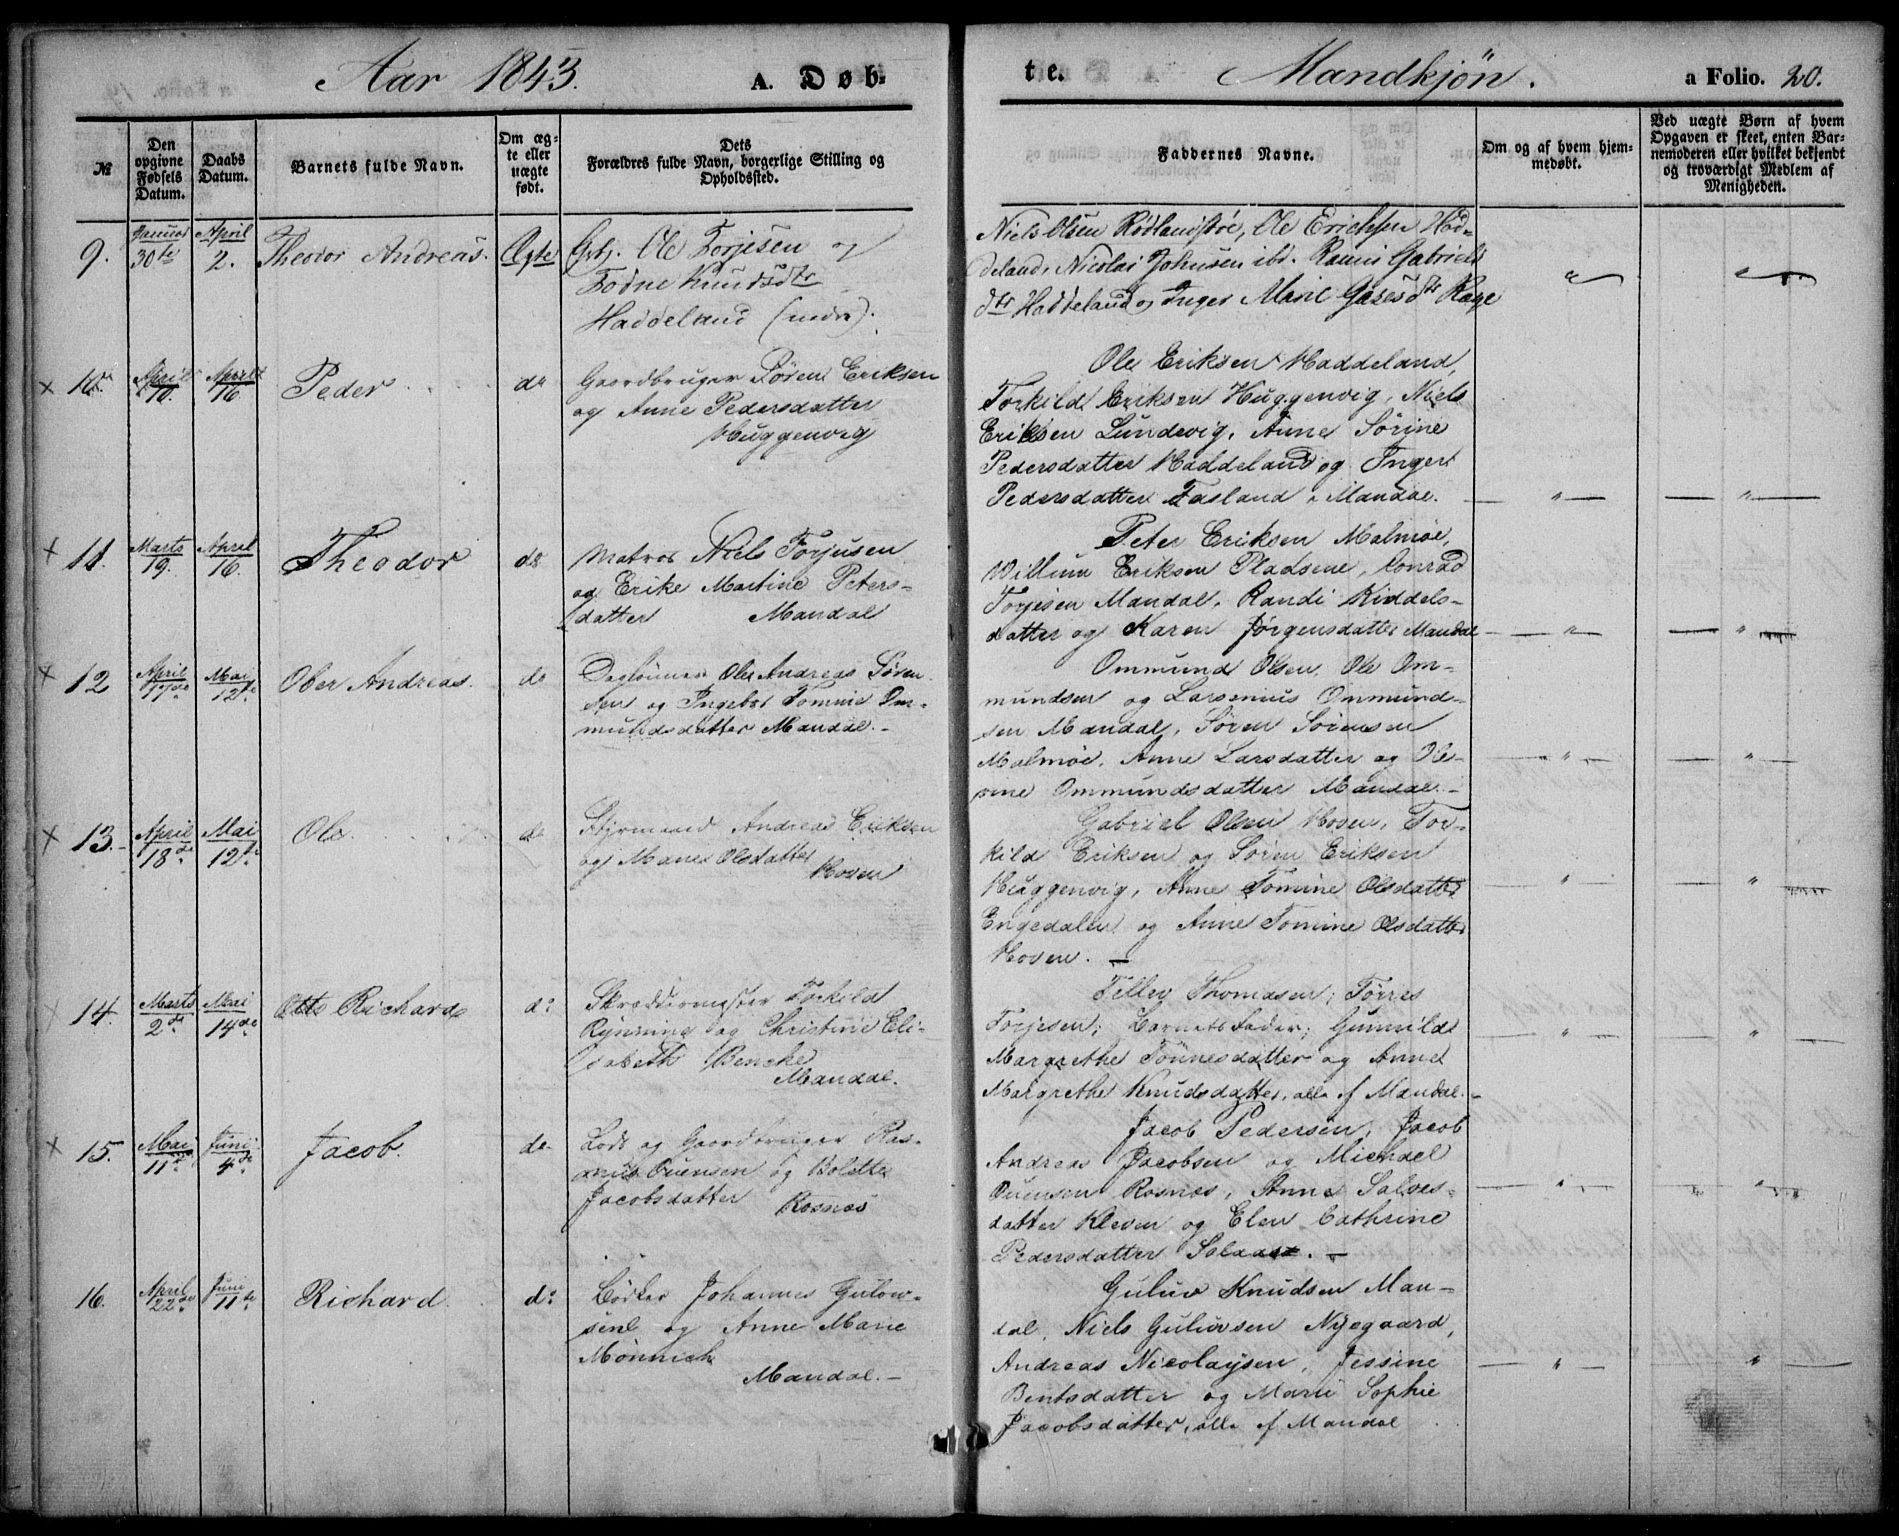 Aar 1843.
A. Døb-
te.
Mandkjön.
a Folio. 20.
№
Den opgivne Fødsels Datum.
Daabs Datum.
Barnets fulde Navn.
Om æg-
te eller
uægte
født.
Dets
Forældres fulde Navn, borgerlige Stilling og
Opholdssted.
Faddernes Navne.
Om og af hvem hjem-
medøbt.
Ved uægte Børn af hvem
Opgaven er skeet, enten Bar-
nemoderen eller hvilket bekjendt
og troværdigt Medlem af
Menigheden.
9. Januar 30te April 2. Theodor Andreas. Ægte
Ole Torjesen og
Todne Knudsdtr
Haddeland (indre).
Niels Olsen Ole Erichsen Had-
deland, Nicolai Johnsen ibd. Gabriels
dtr Haddeland og Inger Marie
× 10. April 10. April 16. Peder do
Gaardbruger Søren Eriksen
og Anne Pedersdatter
Huggenvig
Ole Eriksen Haddeland,
Torkild Eriksen Huggenvig, Niels
Eriksen Lundevig, Anne Sørine
Pedersdatter Haddeland og Inger
Pedersdatter Fasland, Mandal.
× 11. Marts 19. April 16. Theodor do
Matros Niels Torjusen
og Erike Martine Peters-
datter Mandal
Peter Eriksen Malmøe,
Willum Eriksen Pladsene, Conrad
Torjesen Mandal, Randi Kiddels-
datter og Karen Jørgensdatter Mandal
× 12 April 17de Mai 12te Ober Andreas. do
Daglønner Ole Andreas Søren
sen og Ingebor Tomine Om-
mundsdatter Mandal.-
Ommund Olsen, Ole Om-
mundsen og Larsenius Ommund-
sen Mandal, Søren Sørensen
Malmøe, Anne Larsdatter og Ole-
vine Ommundsdatter Mandal.-
× 13.- April 18de Mai 12te Ole do
Styrmand Andreas Eriksen
og Manes Olsdatter
Hoven
Gabriel Olsen Hoven, Tor-
kild Eriksen og Søren Eriksen
Huggenvig, Anne Tomine Olsdatter
Engedalen og Anne Tomine Olsdatter
Hoven. -
× 14. Marts 2de Mai 14de Otto Richard do
Skræddermester Torkild
Rynning og Christine Eli-
sabeth Bencke
Mandal.
Tellev Thomasen, Tørres
Torjesen, barnets fader, Gunnild
Margrethe Tønnesdatter og Anne
Margrethe Knudsdatter, alle af Mandal.-
× 15. Mai 11te Juni 4de Jacob. do
Lods og Gaardbruger Ras-
mus Ouensen og Bolette
Jacobsdatter Rosnæs
Jacob Pedersen, Jacob
Andreas Jacobsen og Michael
Ouensen Rosnæs, Anne Salves-
datter Kleven og Elen Cathrine
Pedersdatter -
16. April 22de Juni 11te Richard. do
Bødker Johannes Gulow-
sen og Anne Marie
Mönnich
Mandal.-
Guluv Knudsen Man-
dal, Niels Guluvsen Nyegaard,
Andreas Nicolaysen, Jessine
Bentsdatter og Marie Sophie
Jacobsdatter, alle af Mandal